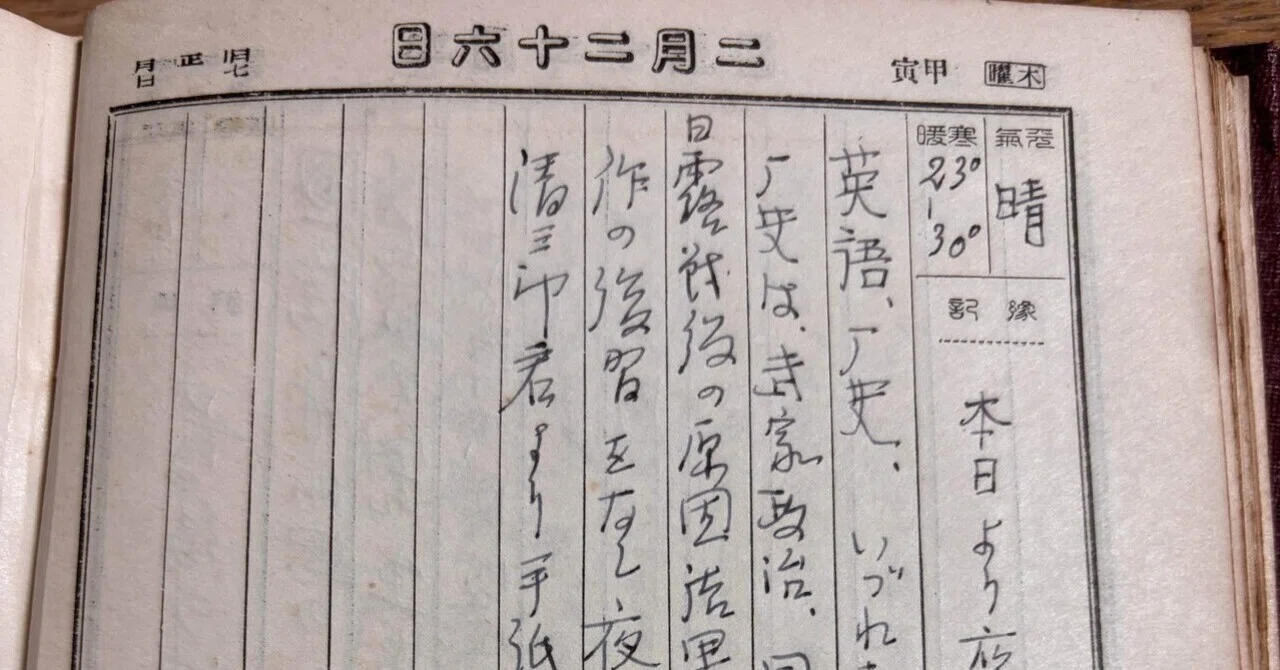 木曜
甲寅
二月二十六日
旧正月
七日
天氣
晴
寒暖
23°-30°
豫記
本日より夜
英語、厂史、いづれ
厂史は、武家政治、
日露戦後の原因結果
作の復習をなし、夜
清三郎君より手紙